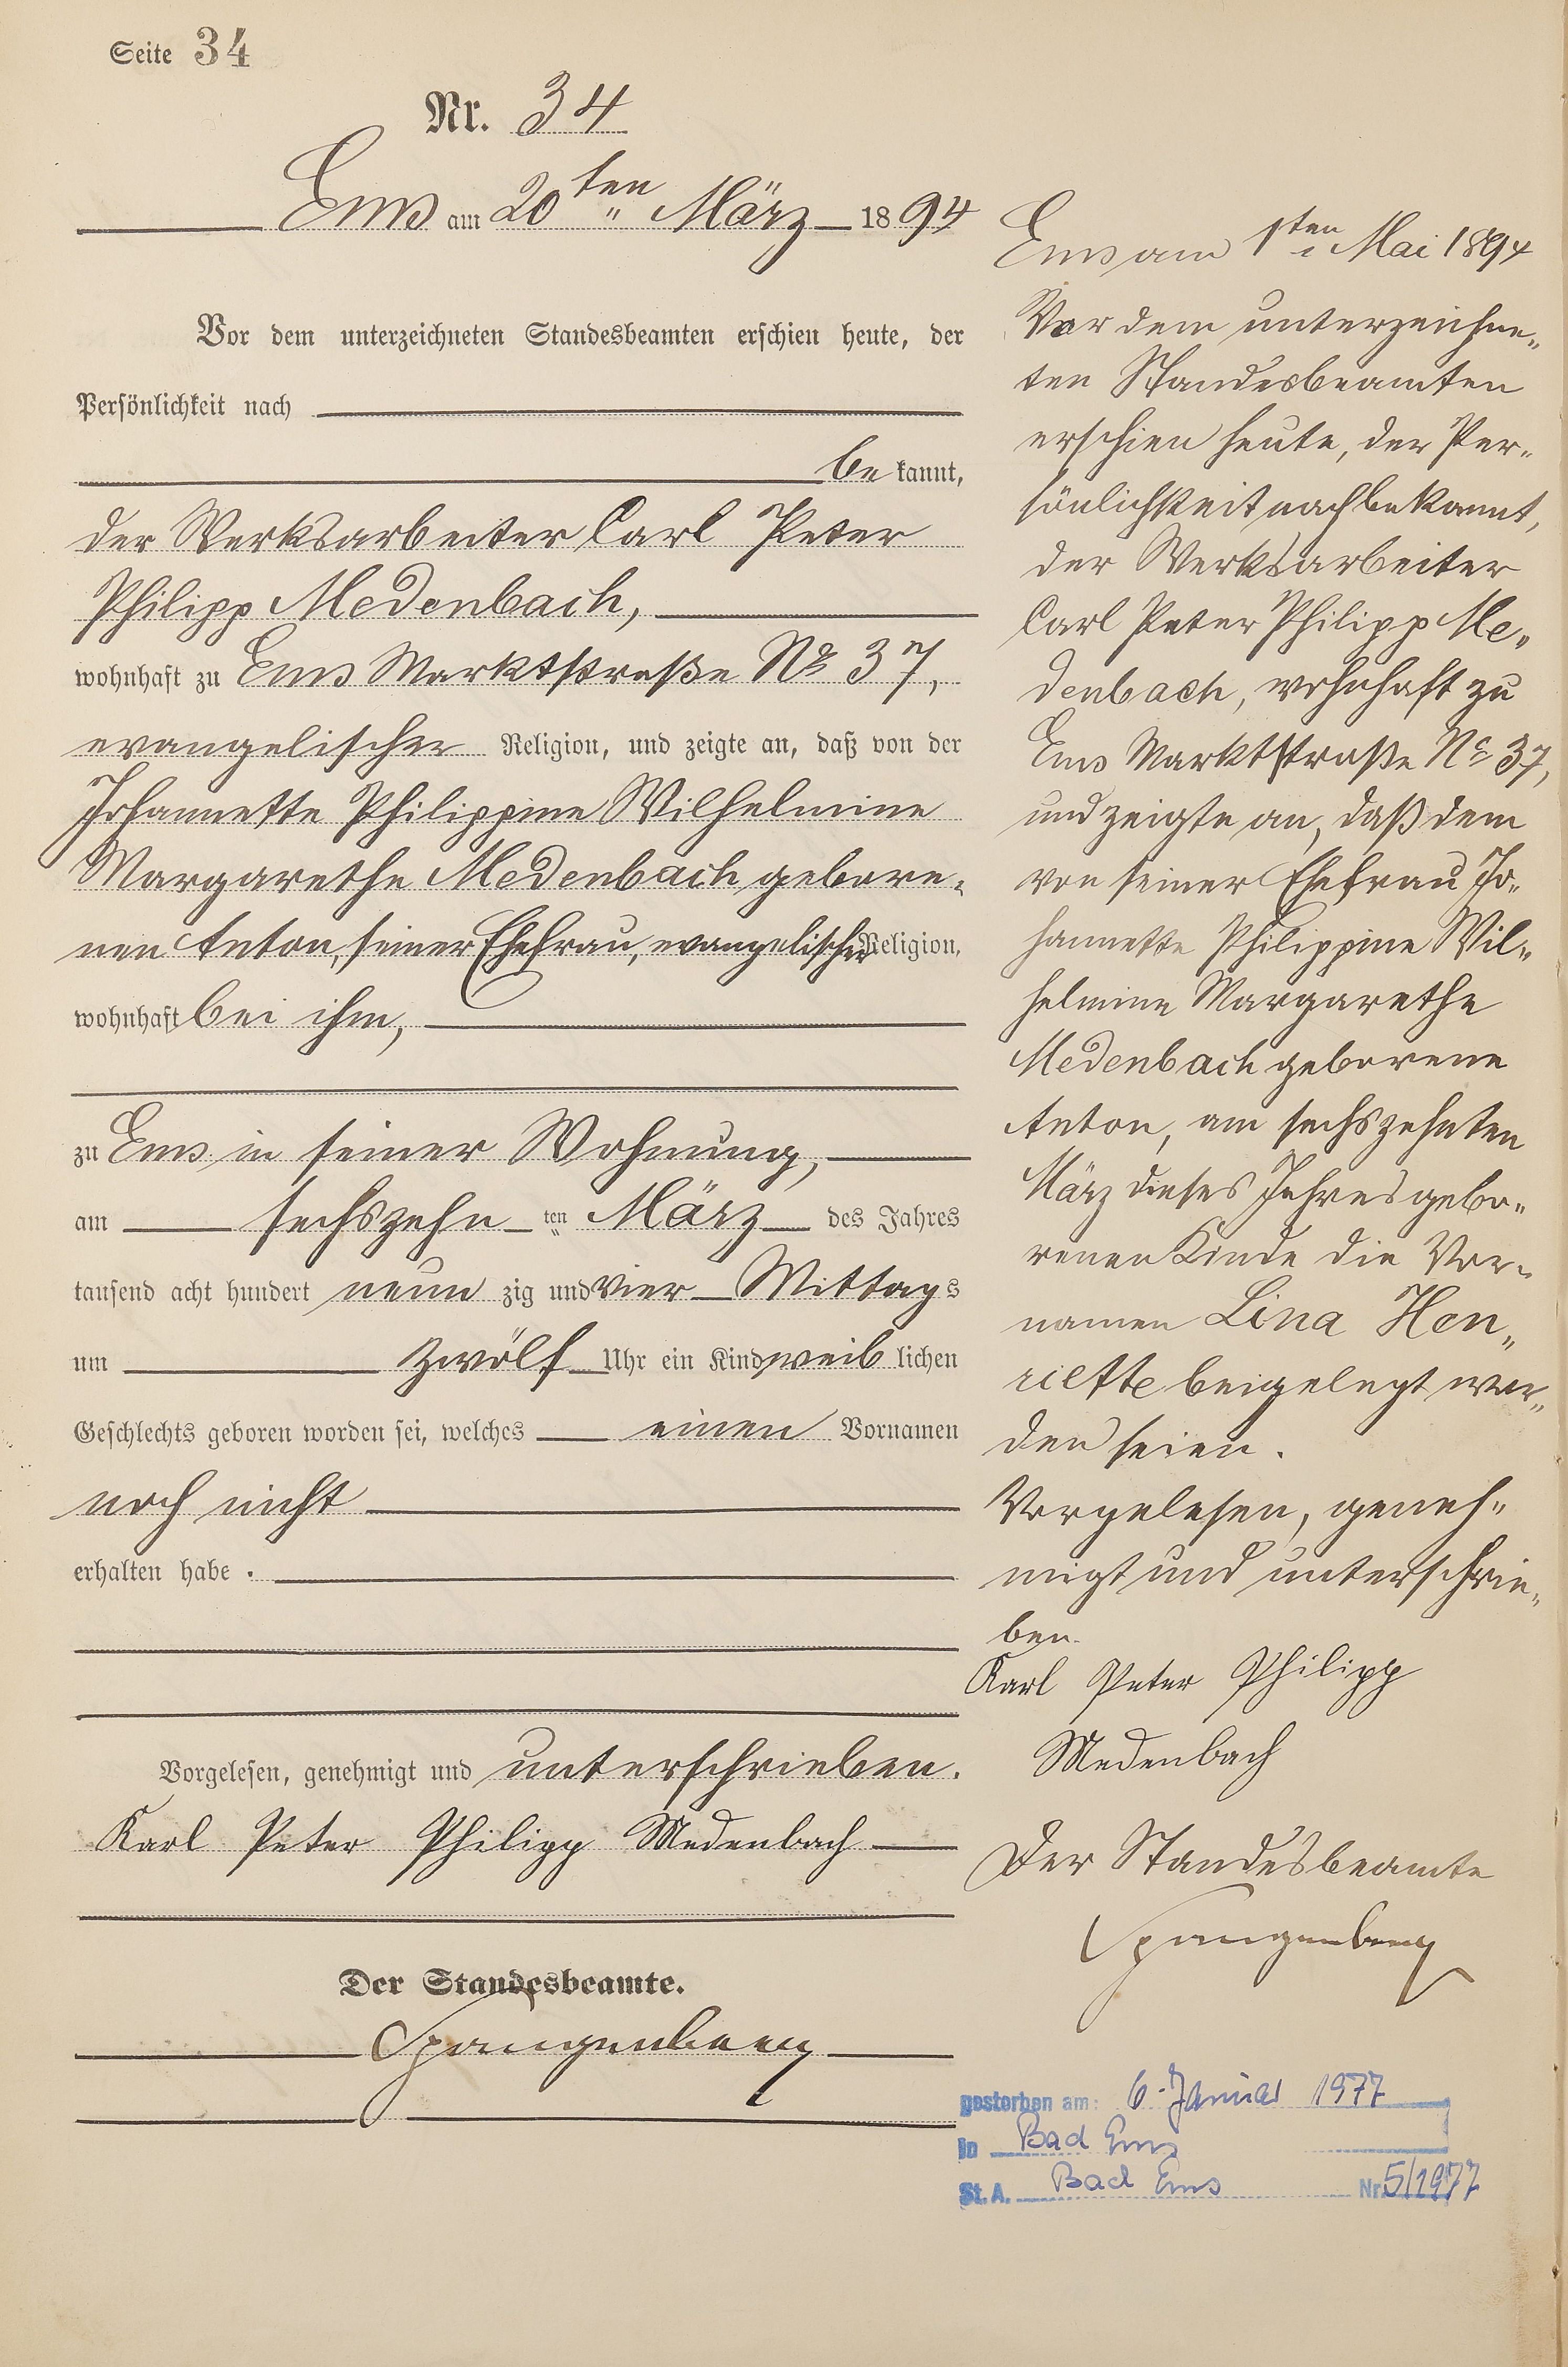 Seite 34
Nr. 34
Ems am 20ten März 1894
Vor dem unterzeichneten Standesbeamten erschien heute, der
Persönlichkeit nach
bekannt,
der Werksarbeiter Carl Peter
Philipp Medenbach,
wohnhaft zu Ems Marktstraße No 37,
evangelischer Religion, und zeigte an, daß von der
Johannette Philippine Wilhelmine
Margarethe Medenbach gebore-
nen Anton, seiner Ehefrau, evangelischer Religion,
wohnhaft bei ihm,
zu Ems in seiner Wohnung,
am sechszehn ten März des Jahres
tausend acht hundert neunzig und vier Mittags
um zwölf Uhr ein Kind weiblichen
Geschlechts geboren worden sei, welches einen Vornamen
noch nicht
erhalten habe.
Vorgelesen, genehmigt und unterschrieben.
Karl Peter Philipp Medenbach
Der Standesbeamte.
Spangenberg
Ems am 1ten Mai 1894
Vor dem unterzeichne-
ten Standesbeamten
erschien heute, der Per-
sönlichkeit nach bekannt,
der Werksarbeiter
Carl Peter Philipp Me-
denbach, wohnhaft zu
Ems Marktstraße No 37,
und zeigte an, daß dem
von seiner Ehefrau Jo-
hannette Philippine Wil-
helmine Margarethe
Medenbach geborene
Anton, am sechszehnten
März dieses Jahres gebo-
renen Kinde die Vor-
namen Lina Hen-
riette beigelegt wor-
den seien.
Vorgelesen, geneh-
migt und unterschrie-
ben.
Karl Peter Philipp
Medenbach
Der Standesbeamte
Spangenberg
gestorben am: 6. Januar 1977
in Bad Ems
St. A. Bad Ems Nr. 5/1977